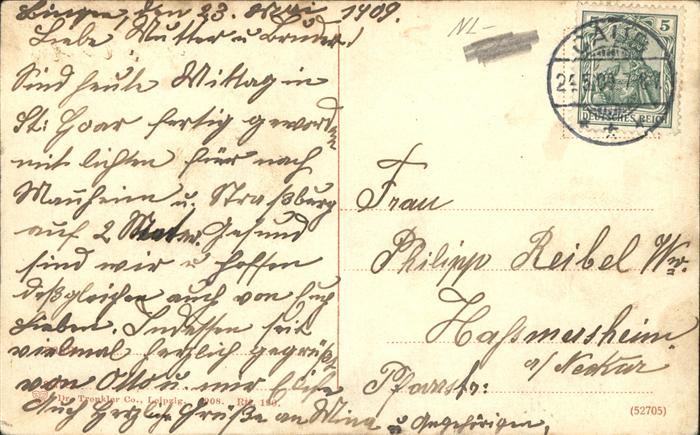 Bingen, den 23. Mai 1909.
Liebe Mutter u. Bruder!
Sind heute Mittag in
St: Goar fertig geworden
mit lichten für nach
Manheim u. Straßburg
auf 2 Meter. Gesund
sind wir u hoffen
desgleichen auch von Euch
Lieben. Indessen seit
vielmal herzlich gegrüßt
von Otto u. mir
Auch Herzlich Grüße an Mina u Angehörigen,
Dr. Trenkler Co., Leipzig. 1908. Rit. 190.
NL-
CAUB
24.5.09
5
DEUTSCHES REICH
Frau
Philipp Reibel Ww.
Hassmersheim
a/ Neckar
Pfarrstr:
(52705)